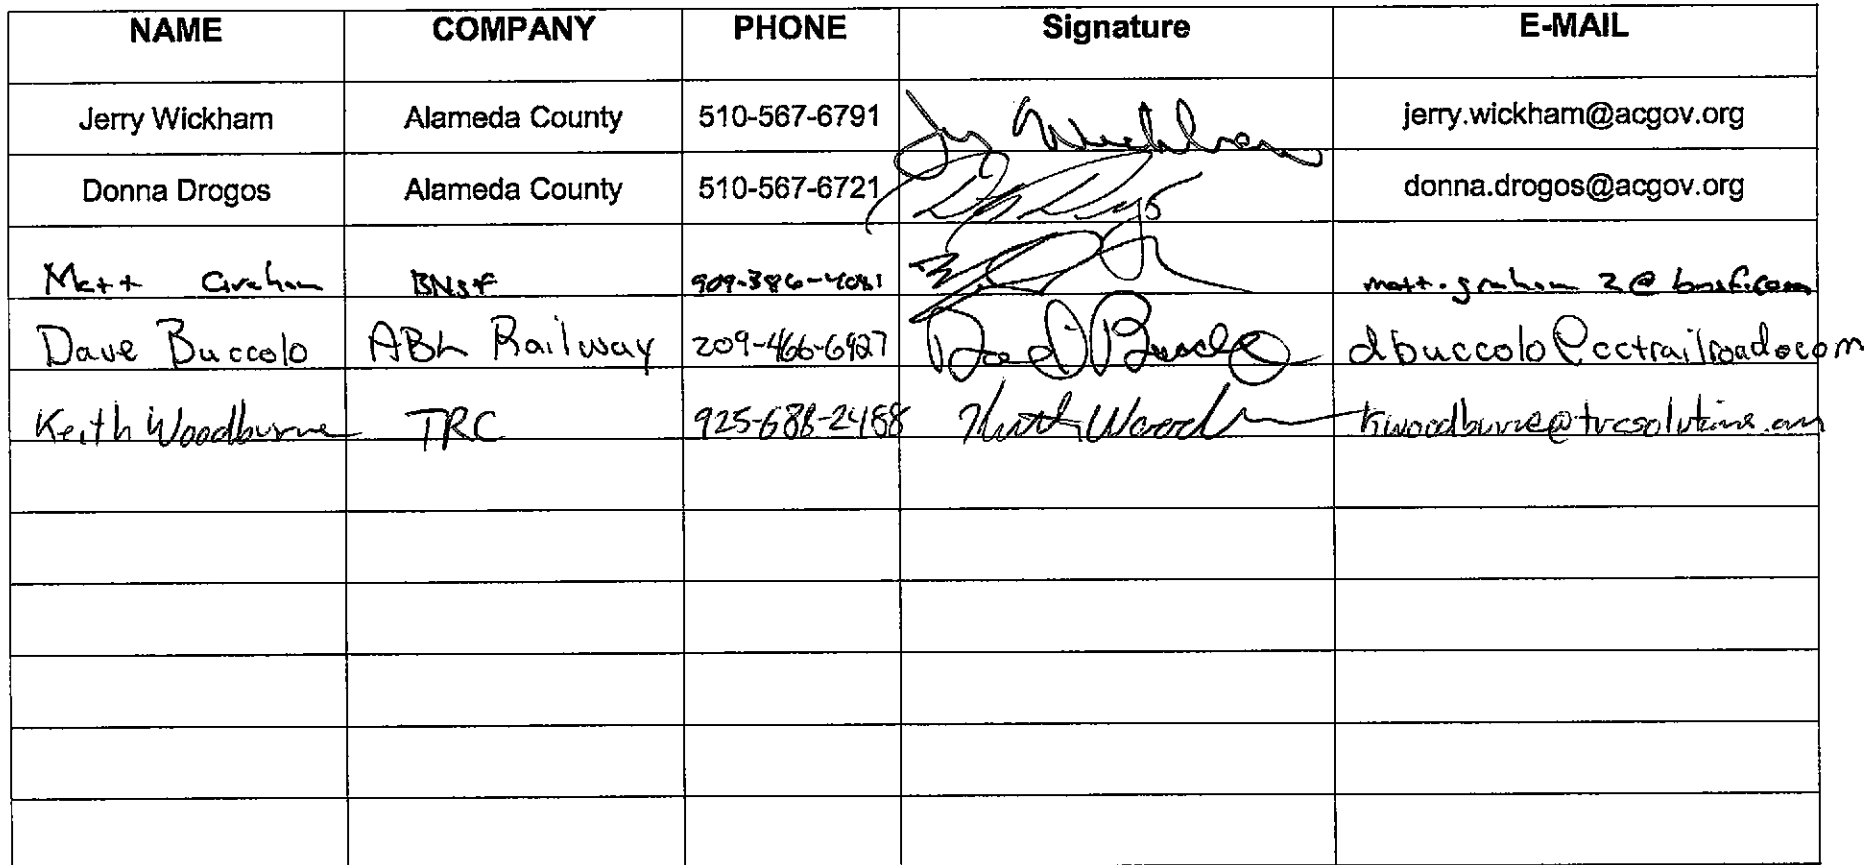 NAME COMPANY PHONE Signature E-MAIL
Jerry Wickham Alameda County 510-567-6791 Jerry Wickham jerry.wickham@acgov.org
Donna Drogos Alameda County 510-567-6721 donna.drogos@acgov.org
Matt Graham BNSF 909-386-4081 matt.graham2@bnsf.com
Dave Buccolo ABL Railway 209-466-6927 dbuccolo@cctrailroad.com
Keith Woodburne TRC 925-688-2488 kwoodburne@trcsolutions.com